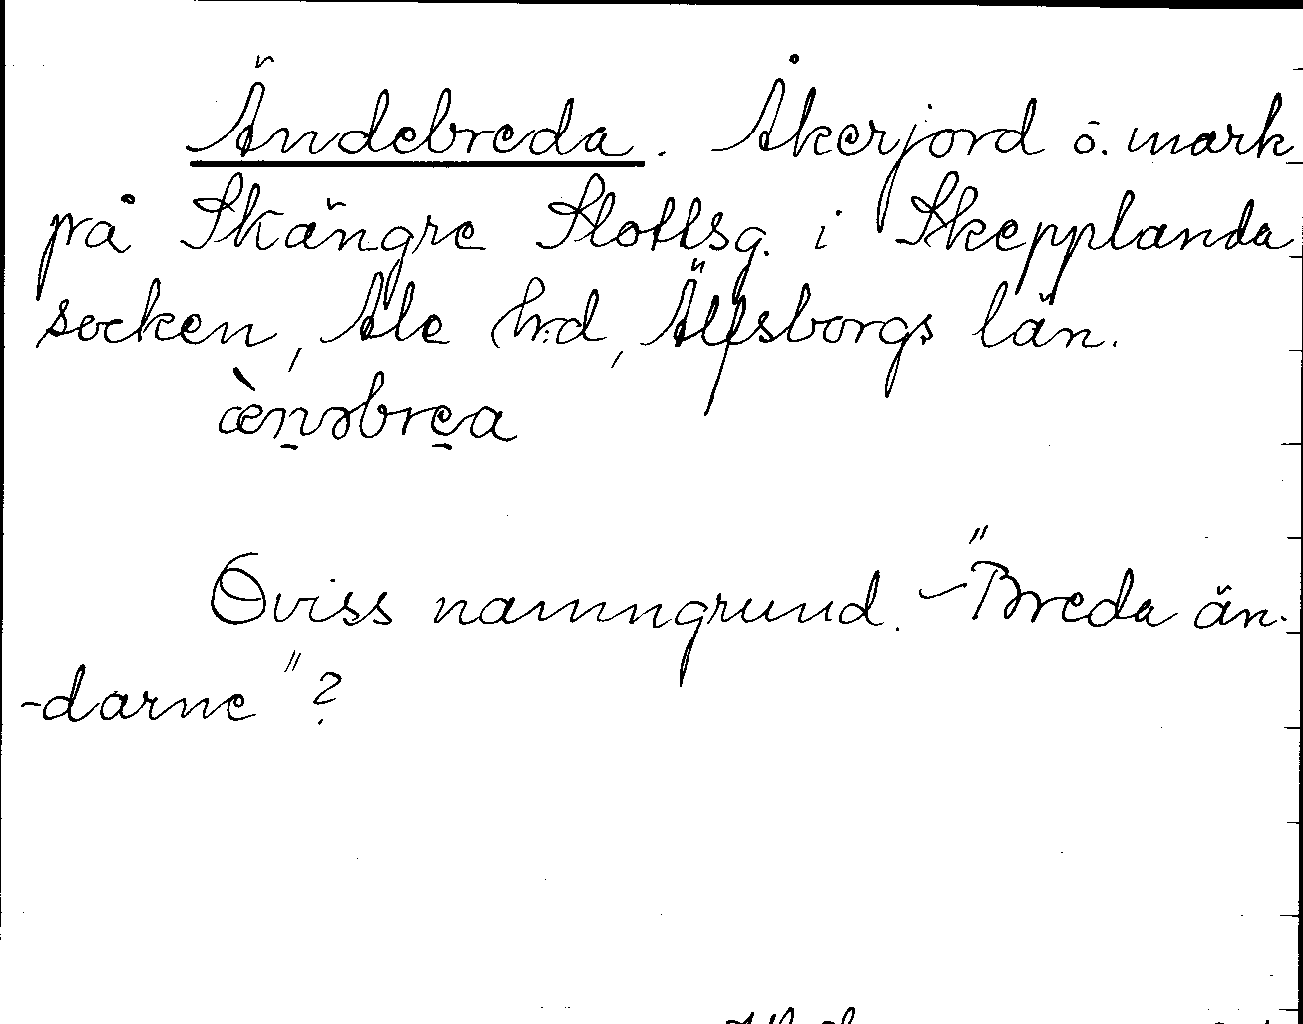 Ändebreda. Åkerjord o. mark
på Skängre Slottsg. i Skepplanda
socken, Ale hrd, Älfsborgs län.
æ̀n̠əbre̠a
Oviss namngrund. - "Breda än-
-darne"?